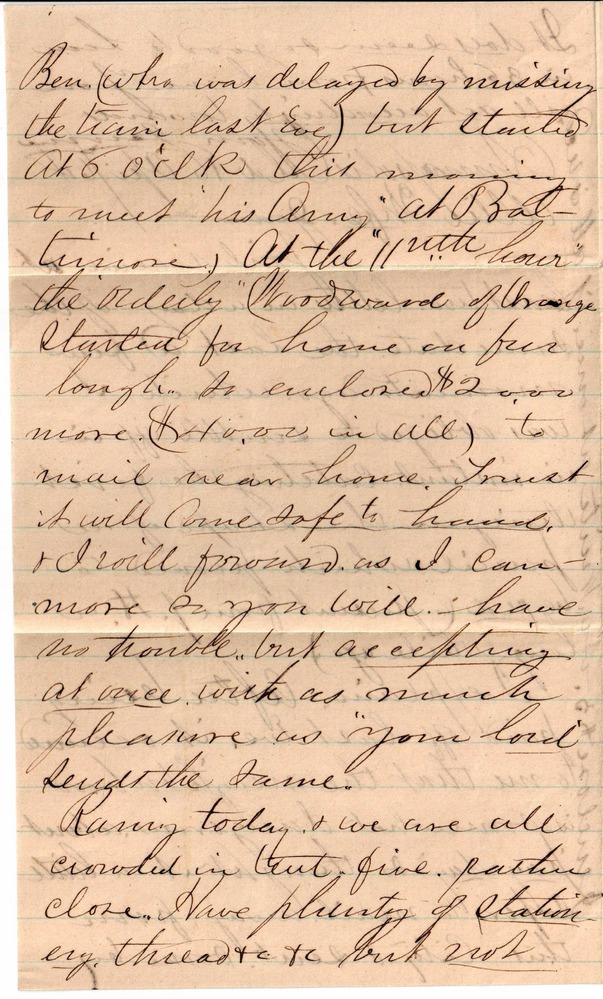 Ben. (who was delayed by missing
the train last Eve) but started
At 6 O'clk this morning
to meet "his Army" at Bal-
timore.) At the "11nth hour"
the "Orderly" (Woodward of Orange
started for home on fur
lough.. so enclosed $20.00
more. ($40.00 in all) to
mail near home. Trust
it will come safe to hand.
& I will forward. as I can-
more so you will. have
no trouble.. but accepting
at once with as much
pleasure as "your lord"
sends the same.
Rainy today. & we are all
crowded in tent. five. rather
close.. Have plenty of station-
ery. thread &c &c but not